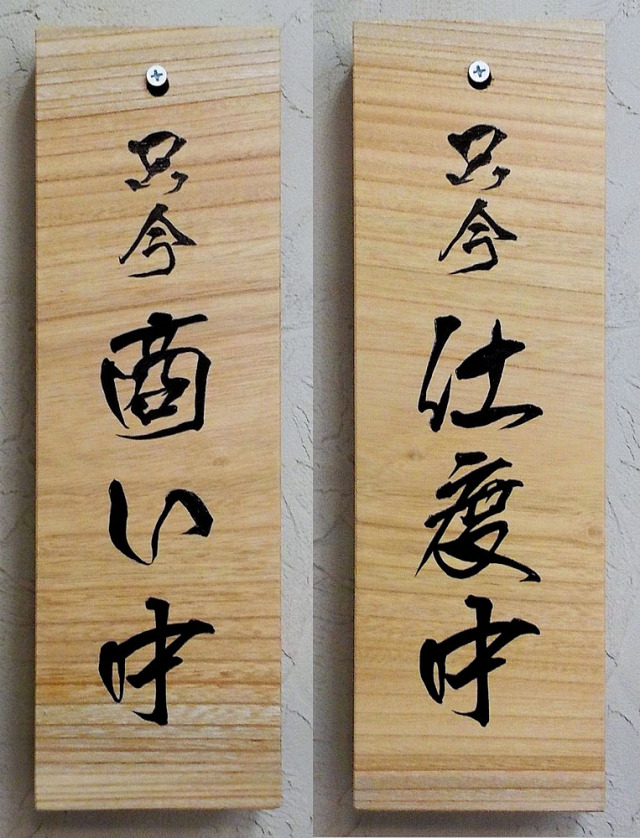 只今商い中
只今仕度中